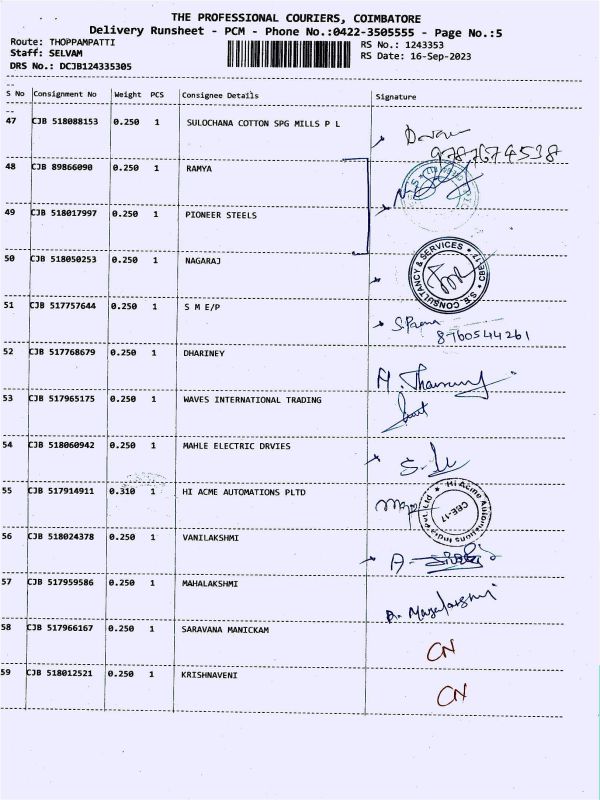 THE PROFESSIONAL COURIERS, COIMBATORE
Delivery Runsheet - PCM - Phone No.:0422-3505555 - Page No.:5
Route: THOPPAMPATTI RS No.: 1243353
Staff: SELVAM RS Date: 16-Sep-2023
DRS No.: DCJB124335305
S No Consignment No Weight PCS Consignee Details Signature
47 CJB 518088153 0.250 1 SULOCHANA COTTON SPG MILLS P L
9787674538
48 CJB 89866090 0.250 1 RAMYA
49 CJB 518017997 0.250 1 PIONEER STEELS
50 CJB 518050253 0.250 1 NAGARAJ
CONSULTANCY & SERVICES
CBE-17
51 CJB 517757644 0.250 1 S M E/P
8760544261
52 CJB 517768679 0.250 1 DHARINEY
53 CJB 517965175 0.250 1 WAVES INTERNATIONAL TRADING
54 CJB 518060942 0.250 1 MAHLE ELECTRIC DRVIES
55 CJB 517914911 0.310 1 HI ACME AUTOMATIONS PLTD
Hi Acme Automations India Pvt. Ltd
CBE-17
56 CJB 518024378 0.250 1 VANILAKSHMI
57 CJB 517959586 0.250 1 MAHALAKSHMI
58 CJB 517966167 0.250 1 SARAVANA MANICKAM
CN
59 CJB 518012521 0.250 1 KRISHNAVENI
CN